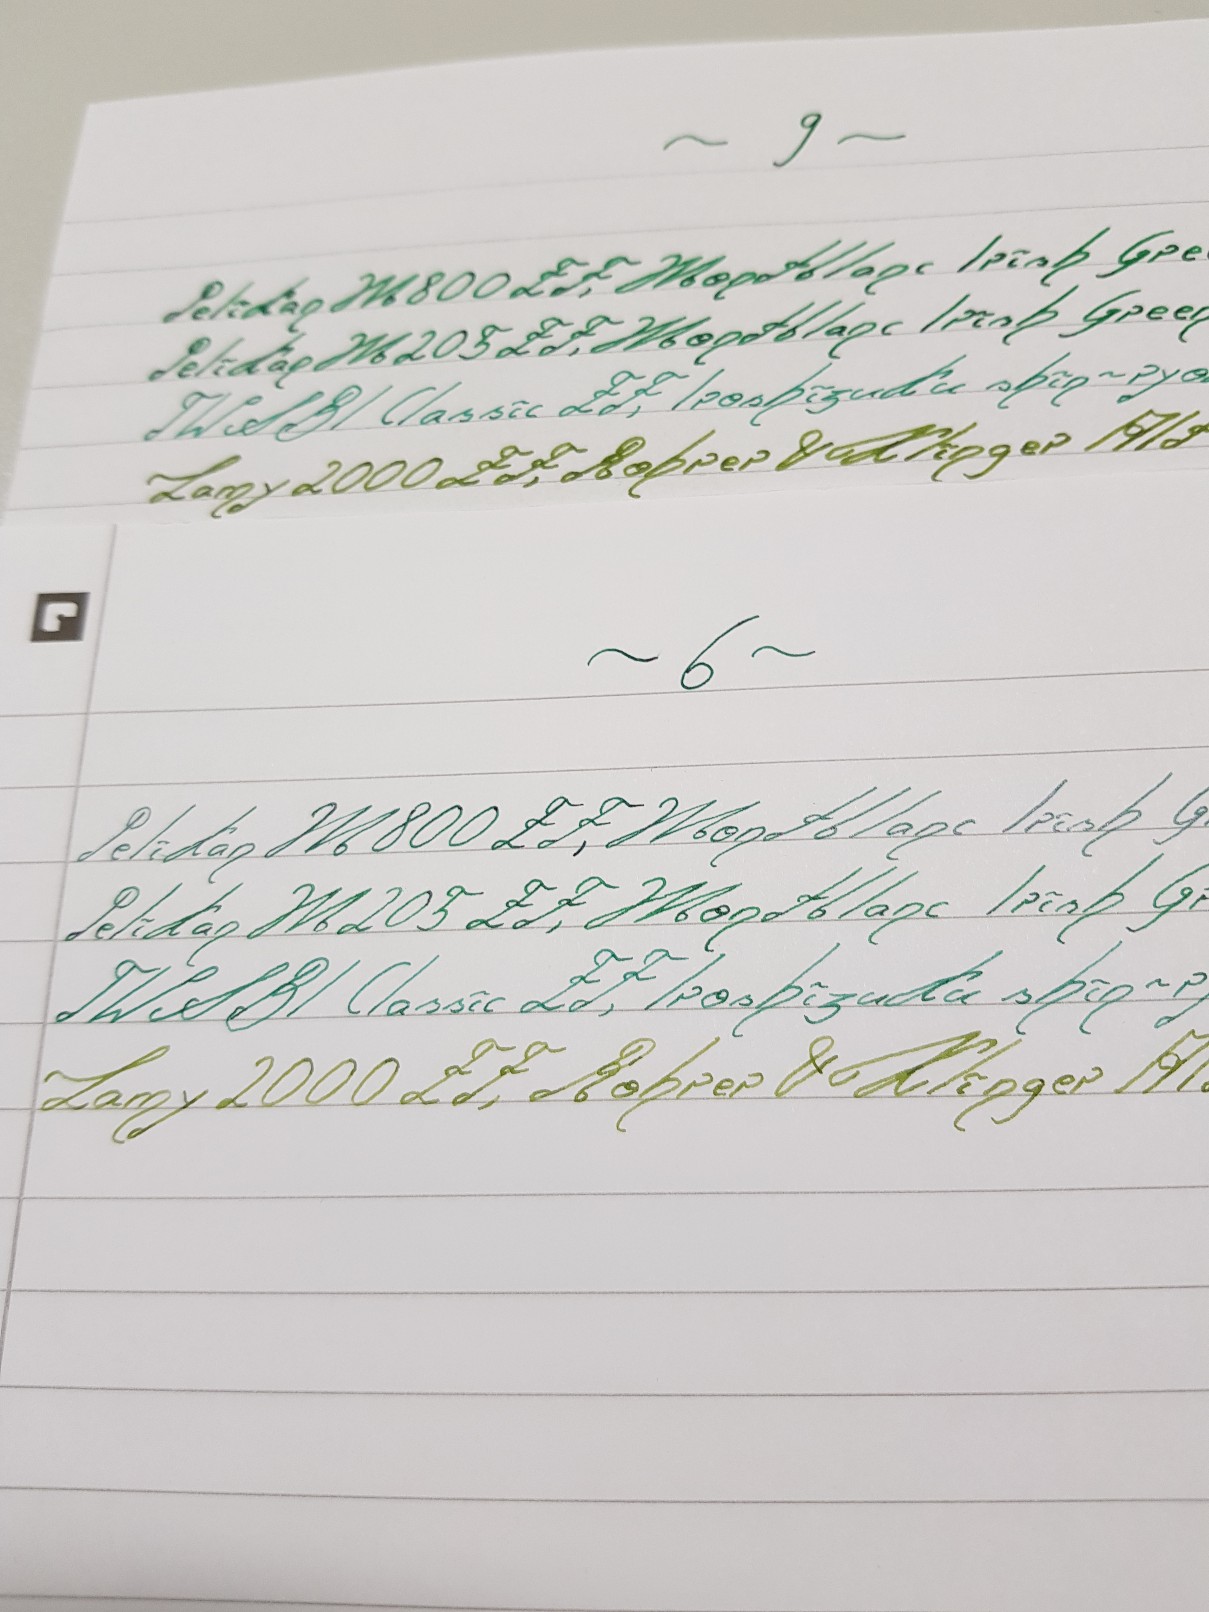 ~ 9 ~
Pelikan M800 EF, Montblanc Irish Gree
Pelikan M205 EF, Montblanc Irish Green
TWSBI Classic EF, Iroshizuku shin-ryo
Lamy 2000 EF, Rohrer & Klinger Alt
~ 6 ~
Pelikan M800 EF, Montblanc Irish G
Pelikan M205 EF, Montblanc Irish Gr
TWSBI Classic EF, Iroshizuku shin-r
Lamy 2000 EF, Rohrer & Klinger Al